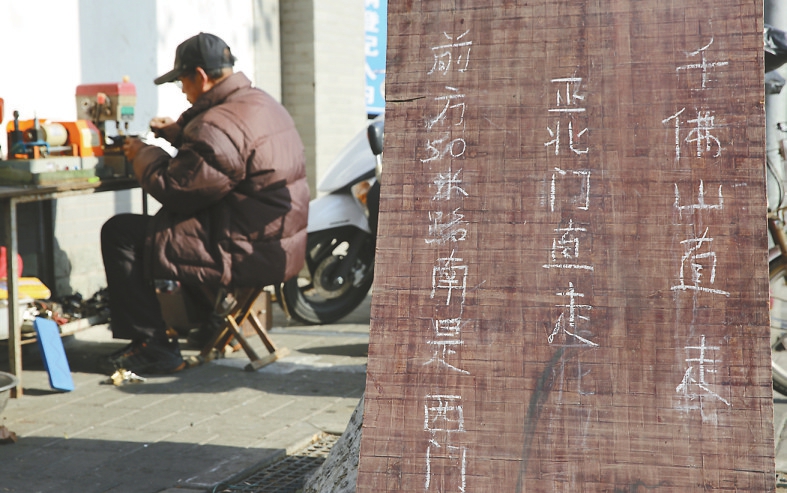 千佛山直走
正北门直走
前方50米路南是西门